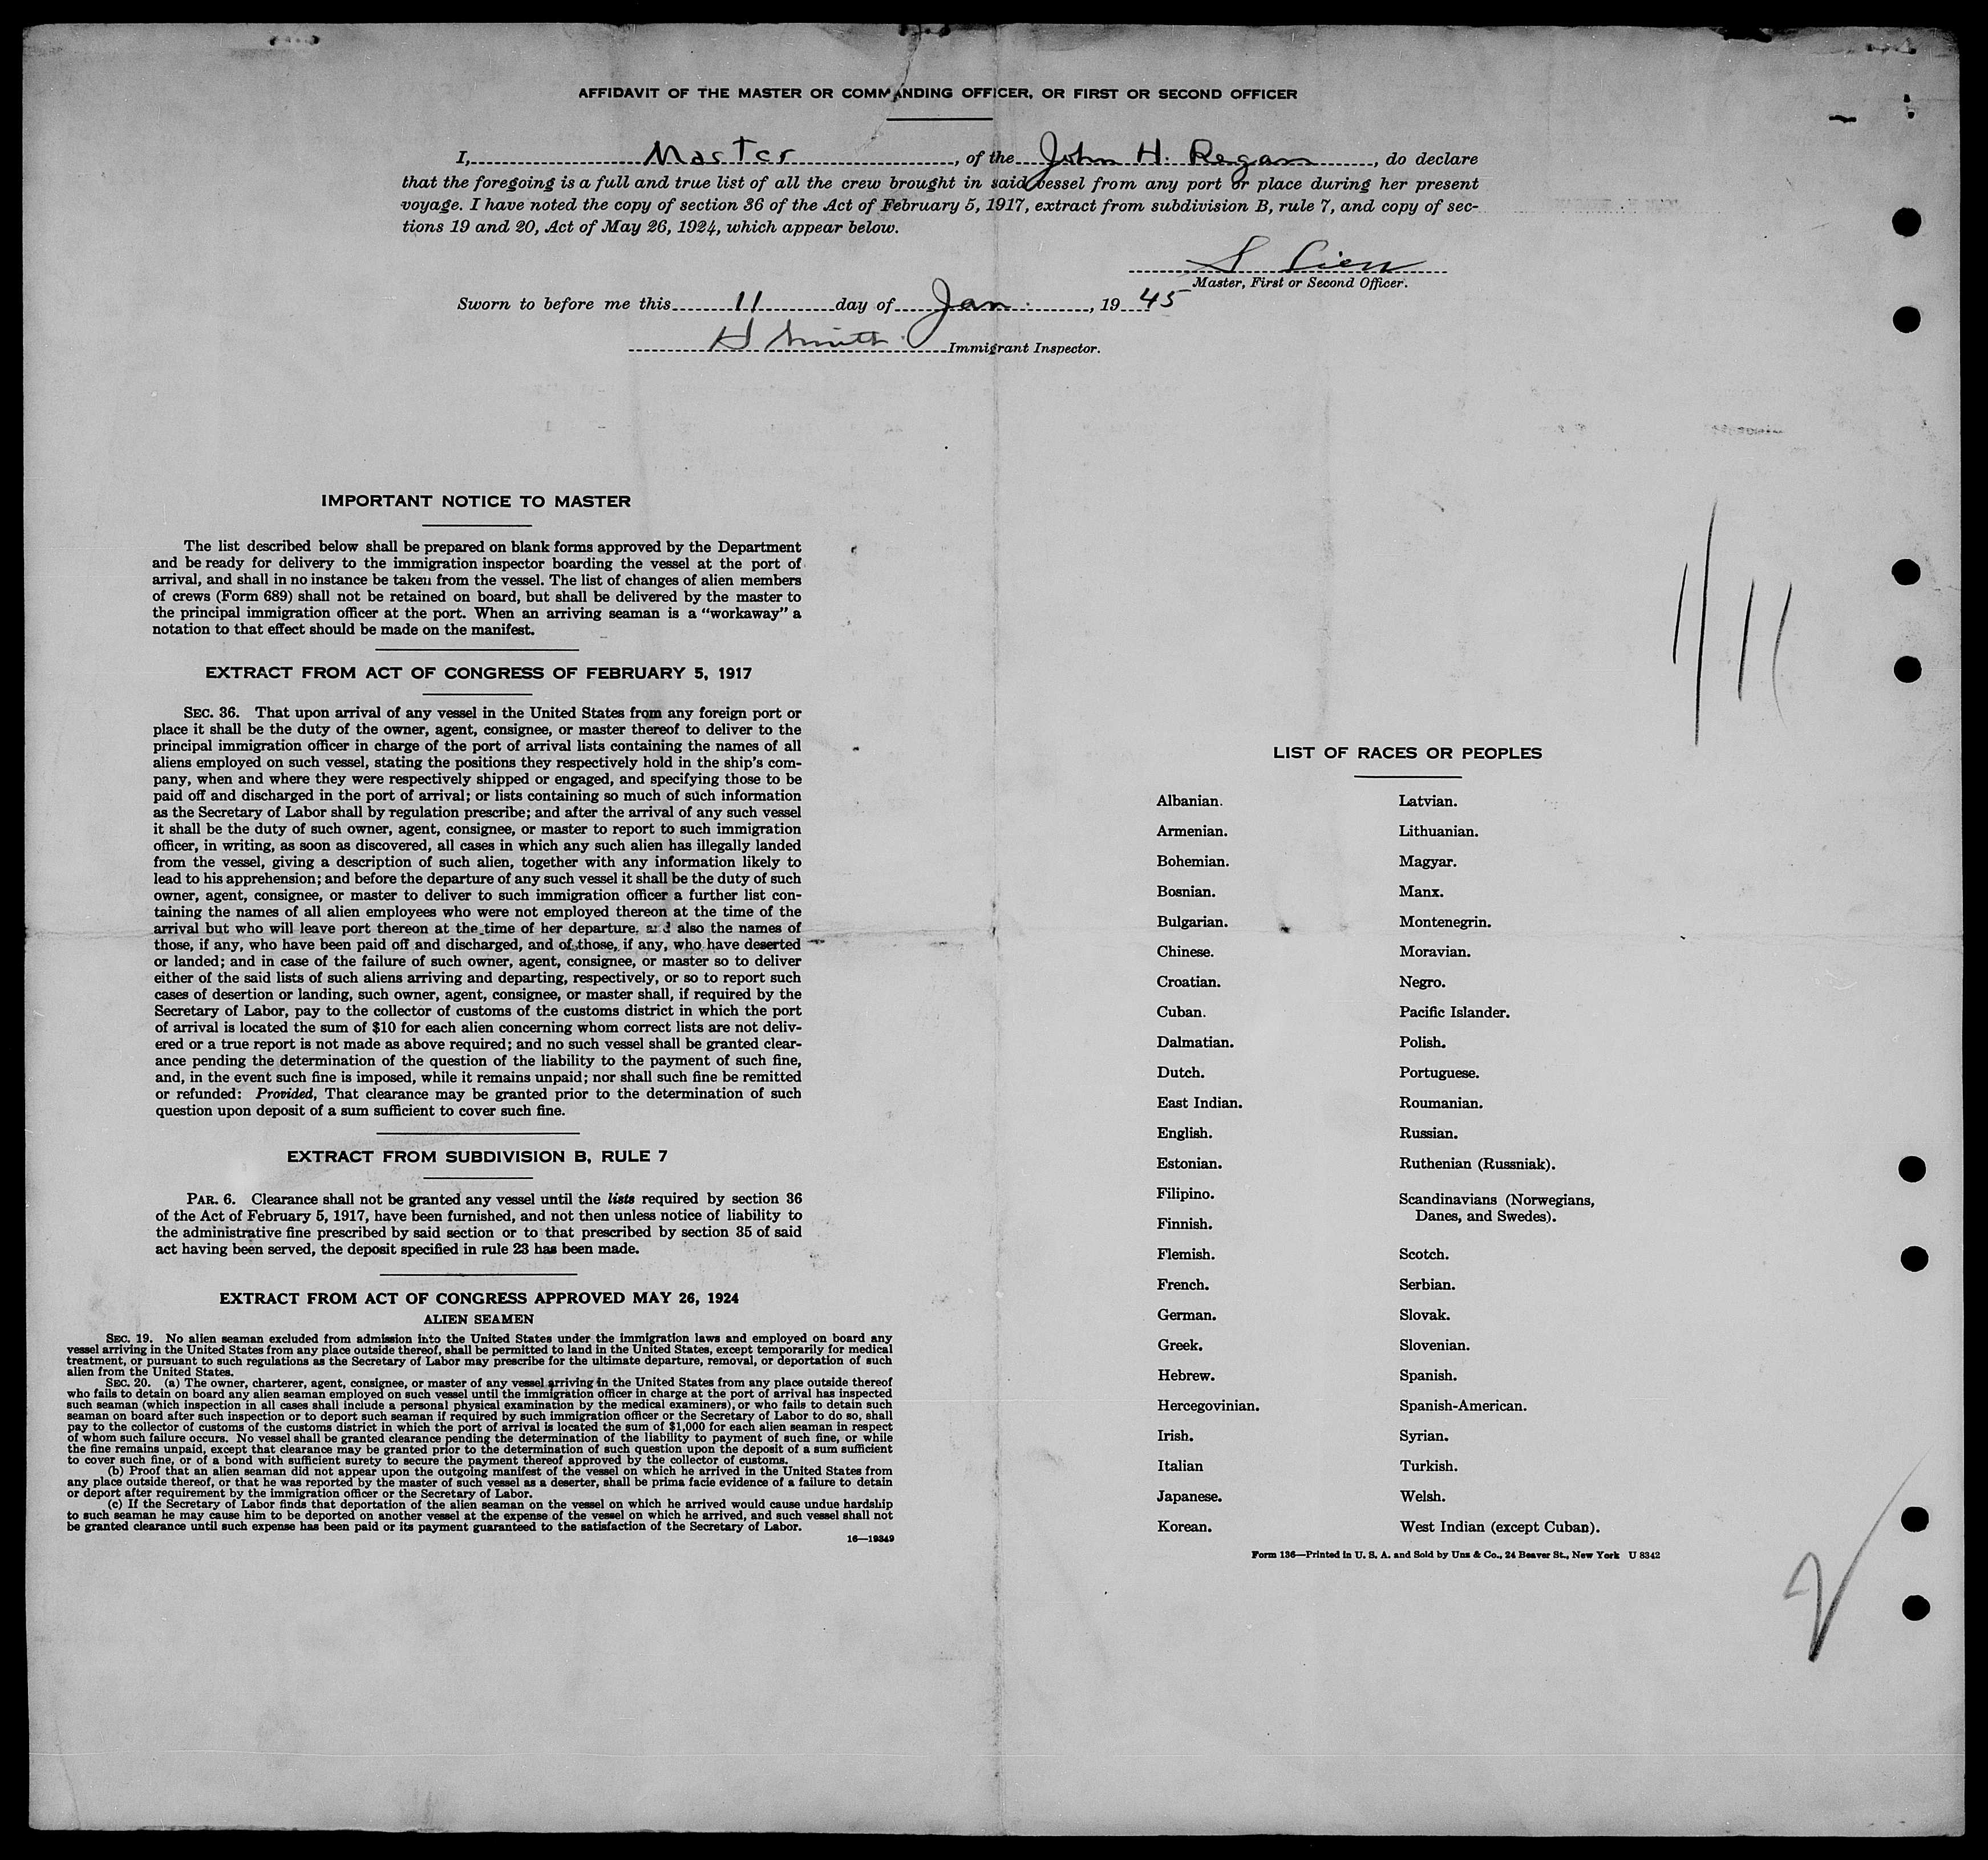 AFFIDAVIT OF THE MASTER OR COMMANDING OFFICER, OR FIRST OR SECOND OFFICER
I, Master, of the John H. Regan, do declare
that the foregoing is a full and true list of all the crew brought in said vessel from any port or place during her present
voyage. I have noted the copy of section 36 of the Act of February 5, 1917, extract from subdivision B, rule 7, and copy of sec-
tions 19 and 20, Act of May 26, 1924, which appear below.
S
Master, First or Second Officer.
Sworn to before me this 11 day of Jan., 1945
H Smith Immigrant Inspector.
IMPORTANT NOTICE TO MASTER
The list described below shall be prepared on blank forms approved by the Department
and be ready for delivery to the immigration inspector boarding the vessel at the port of
arrival, and shall in no instance be taken from the vessel. The list of changes of alien members
of crews (Form 689) shall not be retained on board, but shall be delivered by the master to
the principal immigration officer at the port. When an arriving seaman is a "workaway" a
notation to that effect should be made on the manifest.
EXTRACT FROM ACT OF CONGRESS OF FEBRUARY 5, 1917
SEC. 36. That upon arrival of any vessel in the United States from any foreign port or
place it shall be the duty of the owner, agent, consignee, or master thereof to deliver to the
principal immigration officer in charge of the port of arrival lists containing the names of all
aliens employed on such vessel, stating the positions they respectively hold in the ship's com-
pany, when and where they were respectively shipped or engaged, and specifying those to be
paid off and discharged in the port of arrival; or lists containing so much of such information
as the Secretary of Labor shall by regulation prescribe; and after the arrival of any such vessel
it shall be the duty of such owner, agent, consignee, or master to report to such immigration
officer, in writing, as soon as discovered, all cases in which any such alien has illegally landed
from the vessel, giving a description of such alien, together with any information likely to
lead to his apprehension; and before the departure of any such vessel it shall be the duty of such
owner, agent, consignee, or master to deliver to such immigration officer a further list con-
taining the names of all alien employees who were not employed thereon at the time of the
arrival but who will leave port thereon at the time of her departure, and also the names of
those, if any, who have been paid off and discharged, and of those, if any, who have deserted
or landed; and in case of the failure of such owner, agent, consignee, or master so to deliver
either of the said lists of such aliens arriving and departing, respectively, or so to report such
cases of desertion or landing, such owner, agent, consignee, or master shall, if required by the
Secretary of Labor, pay to the collector of customs of the customs district in which the port
of arrival is located the sum of $10 for each alien concerning whom correct lists are not deliv-
ered or a true report is not made as above required; and no such vessel shall be granted clear-
ance pending the determination of the question of the liability to the payment of such fine,
and, in the event such fine is imposed, while it remains unpaid; nor shall such fine be remitted
or refunded: Provided, That clearance may be granted prior to the determination of such
question upon deposit of a sum sufficient to cover such fine.
EXTRACT FROM SUBDIVISION B, RULE 7
PAR. 6. Clearance shall not be granted any vessel until the lists required by section 36
of the Act of February 5, 1917, have been furnished, and not then unless notice of liability to
the administrative fine prescribed by said section or to that prescribed by section 35 of said
act having been served, the deposit specified in rule 23 has been made.
EXTRACT FROM ACT OF CONGRESS APPROVED MAY 26, 1924
ALIEN SEAMEN
SEC. 19. No alien seaman excluded from admission into the United States under the immigration laws and employed on board any
vessel arriving in the United States from any place outside thereof, shall be permitted to land in the United States, except temporarily for medical
treatment, or pursuant to such regulations as the Secretary of Labor may prescribe for the ultimate departure, removal, or deportation of such
alien from the United States.
SEC. 20. (a) The owner, charterer, agent, consignee, or master of any vessel arriving in the United States from any place outside thereof
who fails to detain on board any alien seaman employed on such vessel until the immigration officer in charge at the port of arrival has inspected
such seaman (which inspection in all cases shall include a personal physical examination by the medical examiners), or who fails to detain such
seaman on board after such inspection or to deport such seaman if required by such immigration officer or the Secretary of Labor to do so, shall
pay to the collector of customs of the customs district in which the port of arrival is located the sum of $1,000 for each alien seaman in respect
of whom such failure occurs. No vessel shall be granted clearance pending the determination of the liability to payment of such fine, or while
the fine remains unpaid, except that clearance may be granted prior to the determination of such question upon the deposit of a sum sufficient
to cover such fine, or of a bond with sufficient surety to secure the payment thereof approved by the collector of customs.
(b) Proof that an alien seaman did not appear upon the outgoing manifest of the vessel on which he arrived in the United States from
any place outside thereof, or that he was reported by the master of such vessel as a deserter, shall be prima facie evidence of a failure to detain
or deport after requirement by the immigration officer or the Secretary of Labor.
(c) If the Secretary of Labor finds that deportation of the alien seaman on the vessel on which he arrived would cause undue hardship
to such seaman he may cause him to be deported on another vessel at the expense of the vessel on which he arrived, and such vessel shall not
be granted clearance until such expense has been paid or its payment guaranteed to the satisfaction of the Secretary of Labor.
16—19349
1/11
LIST OF RACES OR PEOPLES
Albanian.
Armenian.
Bohemian.
Bosnian.
Bulgarian.
Chinese.
Croatian.
Cuban.
Dalmatian.
Dutch.
East Indian.
English.
Estonian.
Filipino.
Finnish.
Flemish.
French.
German.
Greek.
Hebrew.
Hercegovinian.
Irish.
Italian
Japanese.
Korean.
Latvian.
Lithuanian.
Magyar.
Manx.
Montenegrin.
Moravian.
Negro.
Pacific Islander.
Polish.
Portuguese.
Roumanian.
Russian.
Ruthenian (Russniak).
Scandinavians (Norwegians,
Danes, and Swedes).
Scotch.
Serbian.
Slovak.
Slovenian.
Spanish.
Spanish-American.
Syrian.
Turkish.
Welsh.
West Indian (except Cuban).
Form 136—Printed in U. S. A. and Sold by Unz & Co., 24 Beaver St., New York U 8342